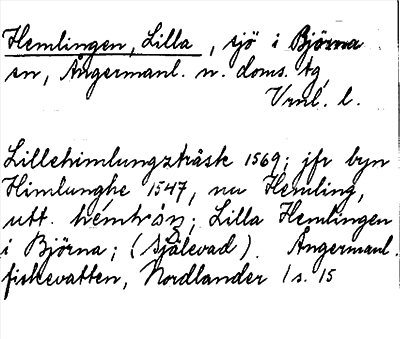 Hemlingen, Lilla, sjö i Björna
sn, Ångermanl. n. doms. tg,
Vrnl. l.
Lillehimlungzträsk 1569; jfr byn
Himlunghe 1547, nu Hemling,
utt. ; Lilla Hemlingen
i Björna; (Själevad). Ångermanl.
fiskevatten, Nordlander 1 s. 15